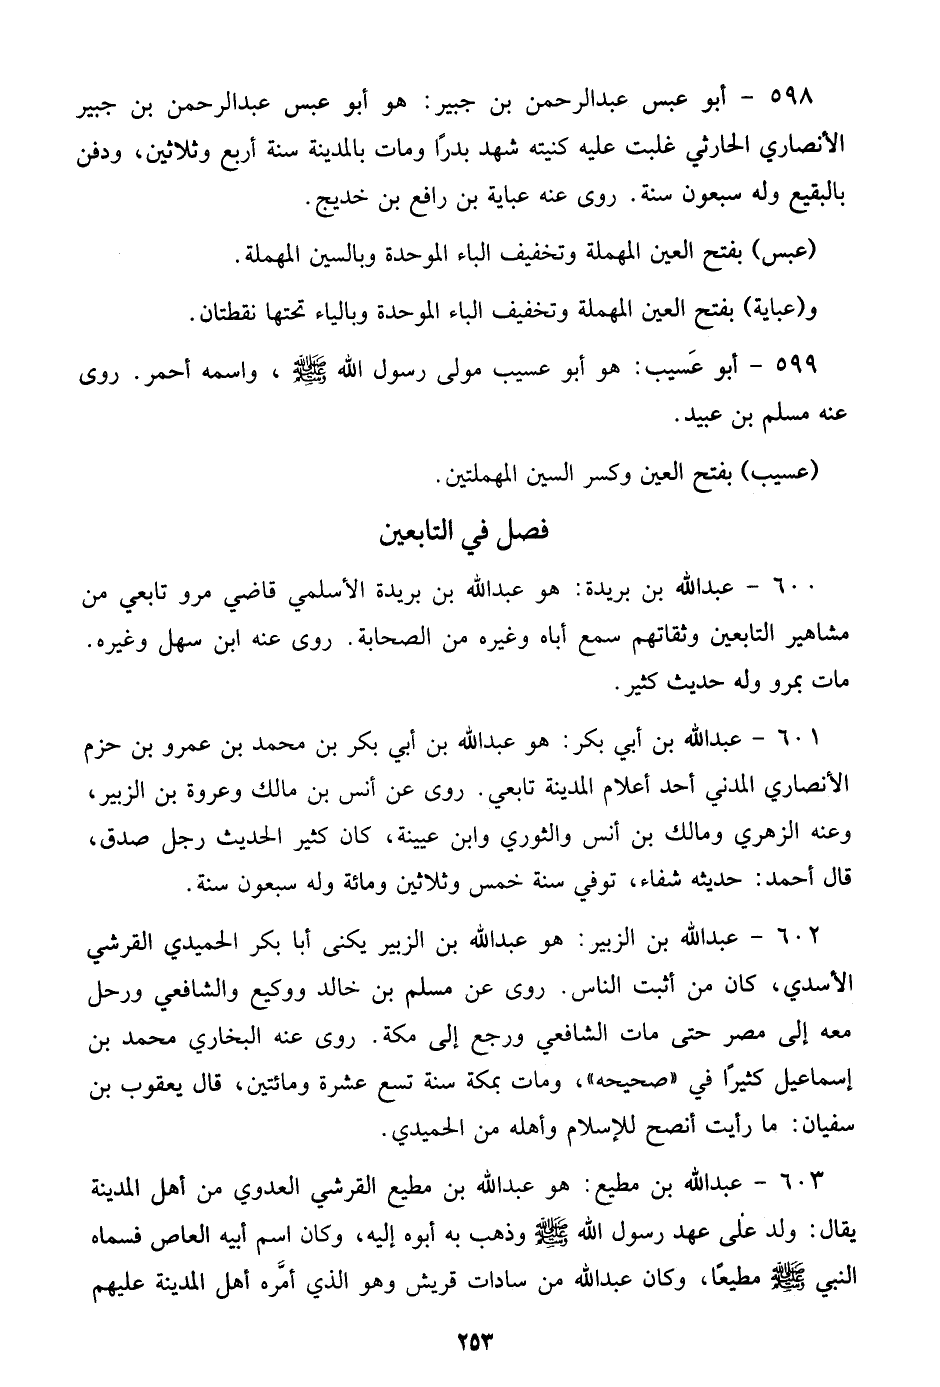 ٥٩٨ - أبو عبس عبدالرحمن بن جبير: هو أبو عبس عبدالرحمن بن جبير
الأنصاري الحارثي غلبت عليه كنيته شهد بدرًا ومات بالمدينة سنة أربع وثلاثين، ودفن
بالبقيع وله سبعون سنة. روى عنه عباية بن رافع بن خديج.
(عبس) بفتح العين المهملة وتخفيف الباء الموحدة وبالسين المهملة.
و(عباية) بفتح العين المهملة وتخفيف الباء الموحدة وبالياء تحتها نقطتان.
٥٩٩ - أبو عَسيب: هو أبو عسيب مولى رسول الله ﷺ ، واسمه أحمر. روى
عنه مسلم بن عبيد.
(عسيب) بفتح العين وكسر السين المهملتين.
فصل في التابعين
٦٠٠ - عبدالله بن بريدة: هو عبدالله بن بريدة الأسلمي قاضي مرو تابعي من
مشاهير التابعين وثقاتهم سمع أباه وغيره من الصحابة. روى عنه ابن سهل وغيره.
مات بمرو وله حديث كثير.
٦٠١ - عبدالله بن أبي بكر: هو عبدالله بن أبي بكر بن محمد بن عمرو بن حزم
الأنصاري المدني أحد أعلام المدينة تابعي. روى عن أنس بن مالك وعروة بن الزبير،
وعنه الزهري ومالك بن أنس والثوري وابن عيينة، كان كثير الحديث رجل صدق،
قال أحمد: حديثه شفاء، توفي سنة خمس وثلاثين ومائة وله سبعون سنة.
٦٠٢ - عبدالله بن الزبير: هو عبدالله بن الزبير يكنى أبا بكر الحميدي القرشي
الأسدي، كان من أثبت الناس. روى عن مسلم بن خالد ووكيع والشافعي ورحل
معه إلى مصر حتى مات الشافعي ورجع إلى مكة. روى عنه البخاري محمد بن
إسماعيل كثيرًا في «صحيحه»، ومات بمكة سنة تسع عشرة ومائتين، قال يعقوب بن
سفيان: ما رأيت أنصح للإسلام وأهله من الحميدي.
٦٠٣ - عبدالله بن مطيع: هو عبدالله بن مطيع القرشي العدوي من أهل المدينة
يقال: ولد على عهد رسول الله ﷺ وذهب به أبوه إليه، وكان اسم أبيه العاص فسماه
النبي ﷺ مطيعًا، وكان عبدالله من سادات قريش وهو الذي أمَّره أهل المدينة عليهم
٢٥٣